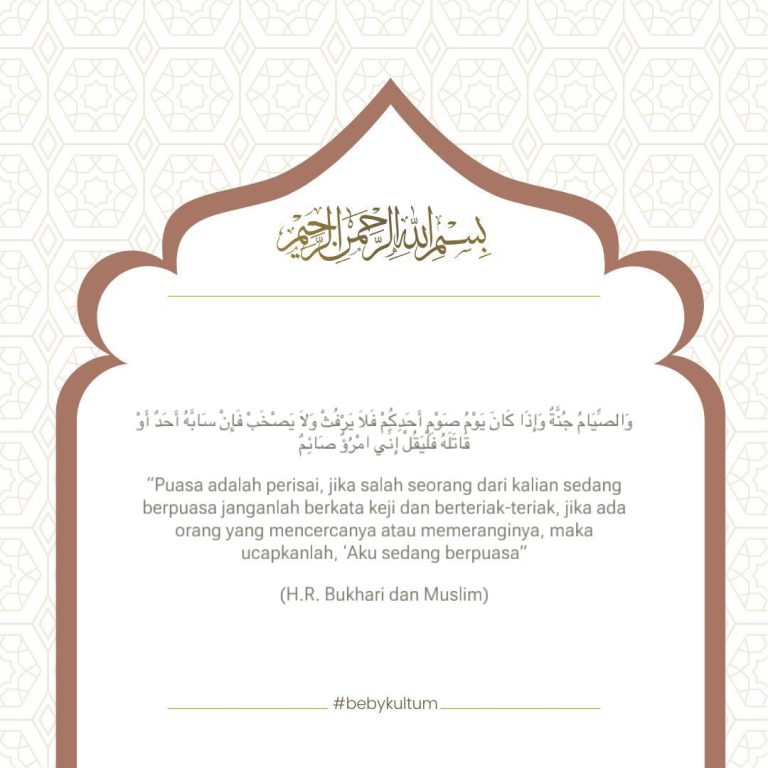 بِسْمِ اللهِ الرَّحْمٰنِ الرَّحِيْمِ
وَالصِّيَامُ جُنَّةٌ وَإِذَا كَانَ يَوْمُ صَوْمِ أَحَدِكُمْ فَلَا يَرْفُثْ وَلَا يَصْخَبْ فَإِنْ سَابَّهُ أَحَدٌ أَوْ
قَاتَلَهُ فَلْيَقُلْ إِنِّي امْرُؤٌ صَائِمٌ
“Puasa adalah perisai, jika salah seorang dari kalian sedang
berpuasa janganlah berkata keji dan berteriak-teriak, jika ada
orang yang mencercanya atau memeranginya, maka
ucapkanlah, ‘Aku sedang berpuasa”
(H.R. Bukhari dan Muslim)
#bebykultum